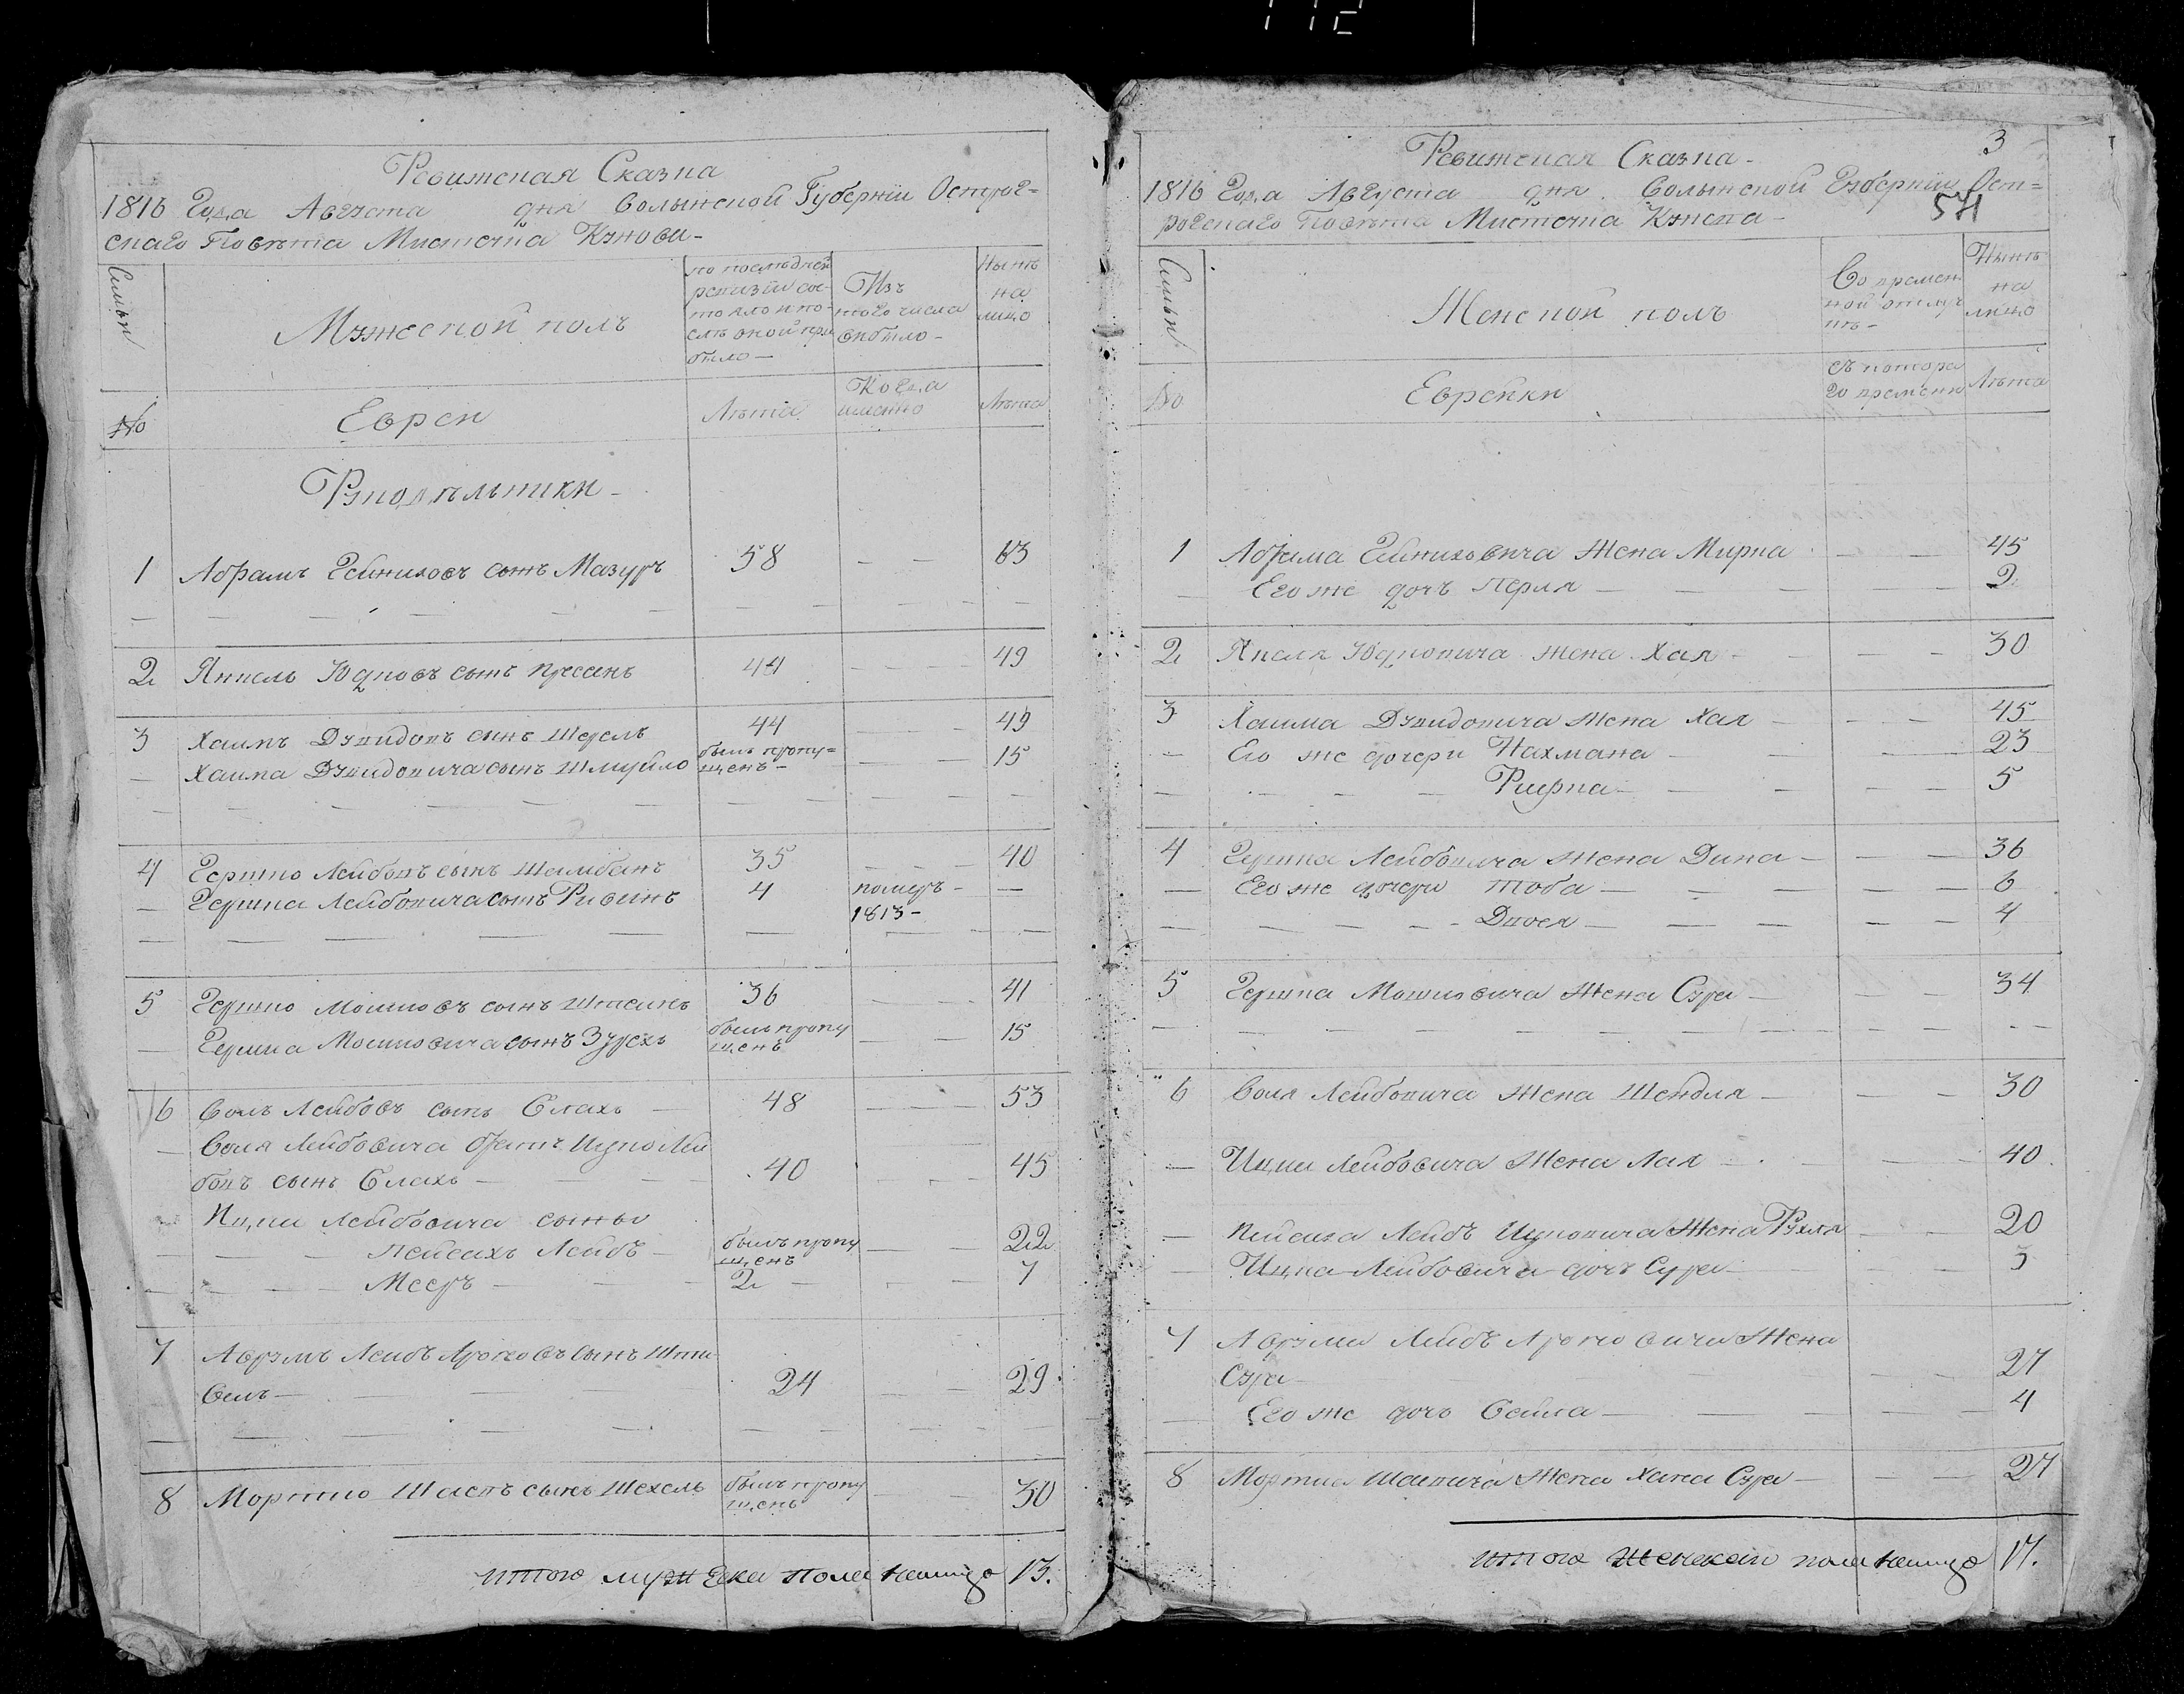 Ревижская Сказка
1816 Года Августа дня Волынской Губернии Острог=
скаго Повѣта Мистечка Кунова-
Семьи
Мужеской полъ
по последней ревизiи сос-
тояло и по-
слѣ оной при
было-
Изъ
того числа
выбыло-
Нынѣ
на
лицо
№
Евреи
Лѣта
Когда
имянно
Лѣта
Рукодѣльники-
1 Абрамъ Гейниховъ сынъ Мазуръ 58 - - 63
2 Янкель Юдковъ сынъ 44 - - - 49
3 Хаимъ Дувидовъ сынъ 44 - 49
Хаима Дувидовича сынъ Шмуйло былъ пропу=
щенъ- 15
4 Гершко Лейбовъ сынъ 35 - - - 40
Гершка Лейбовича сынъ Ривинъ 4 померъ-
1813-
5 Гершко Мошковъ сынъ 36 - - 41
Гершка Мошковича сынъ былъ пропу
щенъ - - 15
6 Волъ Лейбовъ сынъ Влахъ 48 - - - 53
Воля Лейбовича братъ Ицко Лей
бовъ сынъ Влахъ - 40 - - 45
Ицки Лейбовича сыны
Пейсахъ Лейбъ - былъ пропу
щенъ - - 22
Мееръ - 2 - - 7
7 Аврумъ Лейбъ Ароновъ сынъ
24 - - 29
8 Мортко Шаевъ сынъ былъ пропу
щенъ - - 30
итого мужеска пола налицо 13.
3
Ревижская Сказка-
1816 Года Августа дня Волынской Губернии Ост=
рогскаго Повѣта Мистечка Кунева-
571
Семьи
Женской полъ
Во времен
ной отлуч
кѣ-
Нынѣ
на
лицо
№
Еврейки
съ котора
го времени
Лѣта
1 Абрама Гейниховича Жена Мирка - - 45
Его же дочъ Перля - - - 2
2 Янкеля Юдковича жена Хая - - - 30
3 Хаима Дувидовича Жена Хая - - - 45
Его же дочери Нахмана - - 23
Рифка - - - 5
4 Гершка Лейбовича Жена Дина - - - 36
Его же дочери Тоба - - - 6
Двося - - - 4
5 Гершка Мошковича Жена Сура - - - 34
6 Воля Лейбовича Жена Шендля - - - 30
Ицки Лейбовича Жена Лая - - - 40
Пейсаха Лейбъ Ицковича Жена Рухля - - 20
Ицка Лейбовича дочъ Сура - 3
7 Аврума Лейбъ Ароновича Жена
Сура - - - 27
Его же дочъ Бейла - - - 4
8 Мортка Шаевича Жена Хана Сура - - - 27
итого женскаго пола налицо 17.